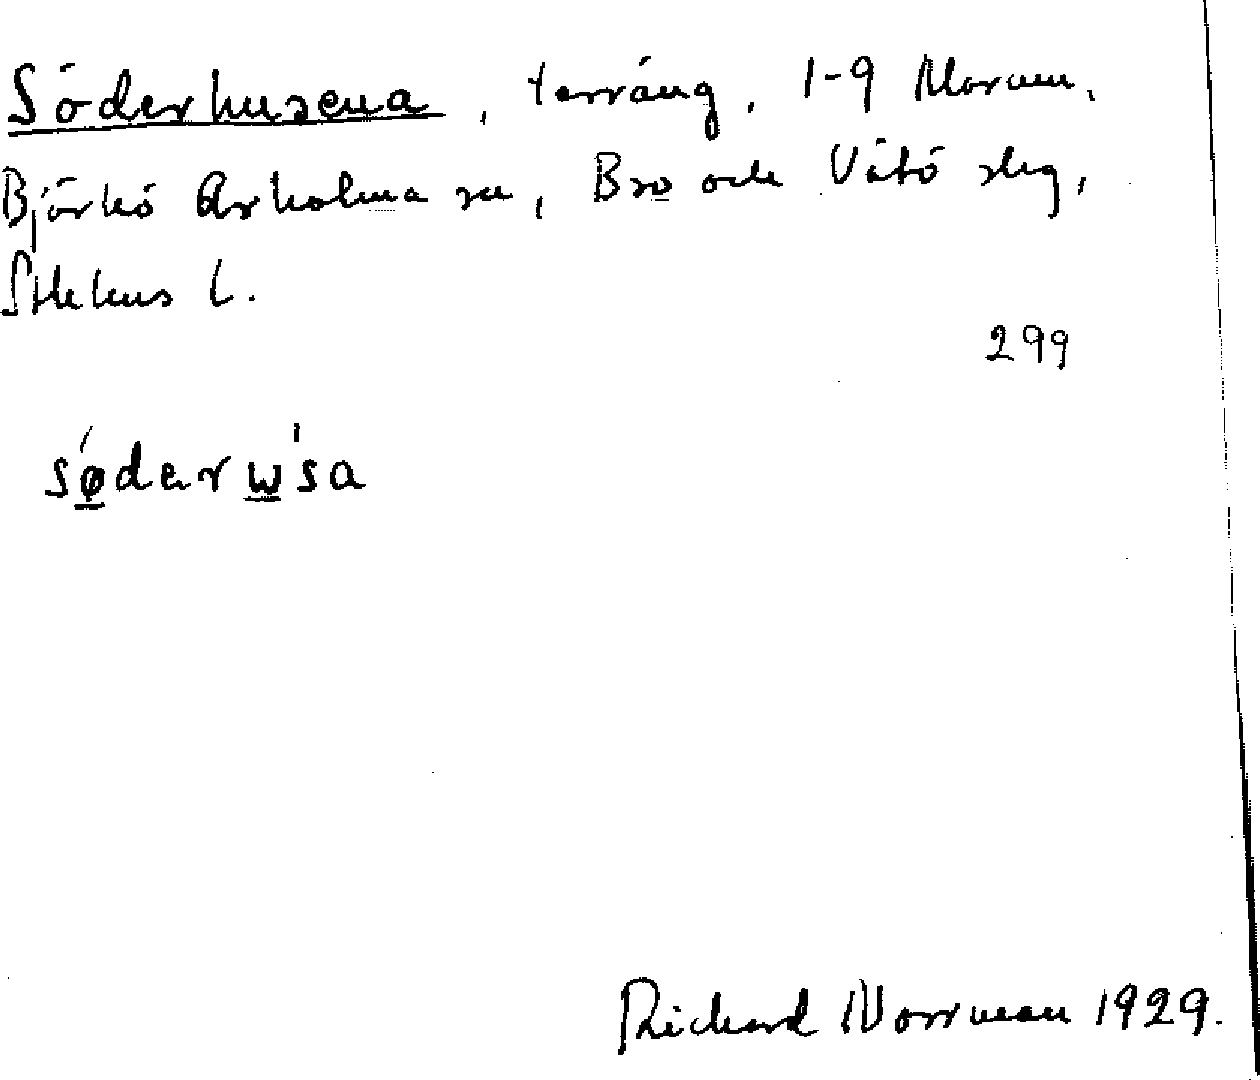 Söderhusena, terräng, 1-9 Marum,
Björkö Arholma sn, Bro och Vätö slg,
Sthlms l.
299
sǿdərw'sa
Richard Norrman 1929.